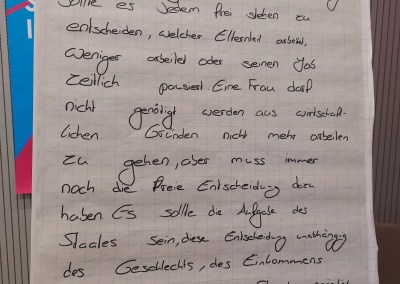 Sollte es jedem frei stehen zu
entscheiden, welcher Elternteil arbeitet,
weniger arbeitet oder seinen Job
zeitlich pausiert. Eine Frau darf
nicht genötigt werden aus wirtschaft-
lichen Gründen nicht mehr arbeiten
zu gehen, aber muss immer
noch die Freie Entscheidung dazu
haben. Es sollte die Aufgabe des
Staates sein, diese Entscheidung unabhängig
des Geschlechts, des Einkommens